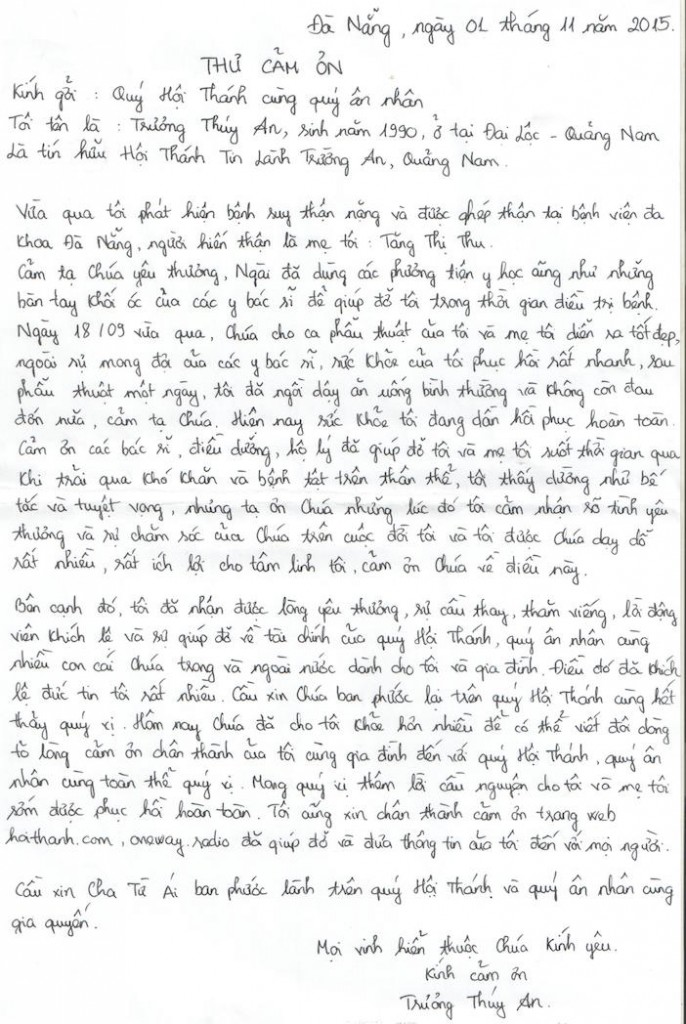 Đà Nẵng, ngày 01 tháng 11 năm 2015.
THƯ CẢM ƠN
Kính gởi : Quý Hội Thánh cùng quý ân nhân
Tôi tên là : Trương Thúy An, sinh năm 1990, ở tại Đại Lộc - Quảng Nam
Là tín hữu Hội Thánh Tin Lành Trường An, Quảng Nam.
Vừa qua tôi phát hiện bệnh suy thận nặng và được ghép thận tại bệnh viện đa
khoa Đà Nẵng, người hiến thận là mẹ tôi : Tăng Thị Thu.
Cảm tạ Chúa yêu thương, Ngài đã dùng các phương tiện y học cũng như những
bàn tay khối óc của các y bác sĩ để giúp đỡ tôi trong thời gian điều trị bệnh.
Ngày 18/09 vừa qua, Chúa cho ca phẫu thuật của tôi và mẹ tôi diễn ra tốt đẹp,
ngoài sự mong đợi của các y bác sĩ, sức khỏe của tôi phục hồi rất nhanh, sau
phẫu thuật một ngày, tôi đã ngồi dậy ăn uống bình thường và không còn đau
đớn nữa, cảm tạ Chúa. Hiện nay sức khỏe tôi đang dần hồi phục hoàn toàn.
Cảm ơn các bác sĩ, điều dưỡng, hộ lý đã giúp đỡ tôi và mẹ tôi suốt thời gian qua
Khi trải qua khó khăn và bệnh tật trên thân thể, tôi thấy dường như bế
tắc và tuyệt vọng, nhưng tạ ơn Chúa những lúc đó tôi cảm nhận rõ tình yêu
thương và sự chăm sóc của Chúa trên cuộc đời tôi và tôi được Chúa dạy dỗ
rất nhiều, rất ích lợi cho tâm linh tôi, cảm ơn Chúa về điều này.
Bên cạnh đó, tôi đã nhận được lòng yêu thương, sự cầu thay, thăm viếng, lời động
viên khích lệ và sự giúp đỡ về tài chính của quý Hội Thánh, quý ân nhân cùng
nhiều con cái Chúa trong và ngoài nước dành cho tôi và gia đình. Điều đó đã khích
lệ đức tin tôi rất nhiều. Cầu xin Chúa ban phước lại trên quý Hội Thánh cùng hết
thảy quý vị. Hôm nay Chúa đã cho tôi khỏe hơn nhiều để có thể viết đôi dòng
tỏ lòng cảm ơn chân thành của tôi cùng gia đình đến với quý Hội Thánh, quý ân
nhân cùng toàn thể quý vị. Mong quý vị thêm lời cầu nguyện cho tôi và mẹ tôi
sớm được phục hồi hoàn toàn. Tôi cũng xin chân thành cảm ơn trang web
hoithanh.com, oneway.radio đã giúp đỡ và đưa thông tin của tôi đến với mọi người.
Cầu xin Cha Từ Ái ban phước lành trên quý Hội Thánh và quý ân nhân cùng
gia quyến.
Mọi vinh hiển thuộc Chúa Kính yêu.
Kính cảm ơn
Trương Thúy An.